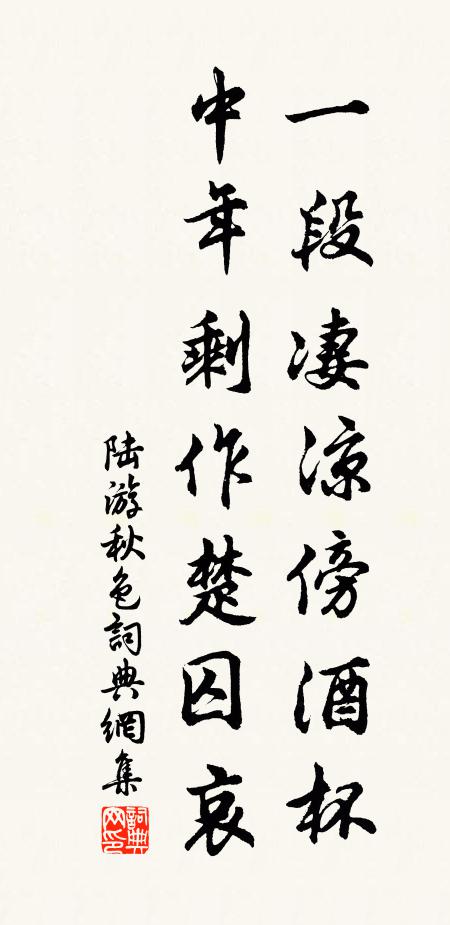 一段淒涼傍酒杯
中年剩作楚囚哀
陆游秋色詞典網集
詞典网印